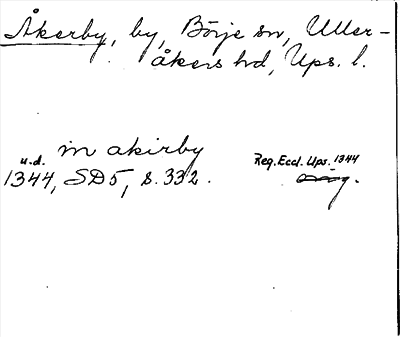 Åkerby, by, Börje sn, Uller-
åkers hd, Ups. l.
in akirby
u.d.
1344, SD5, s. 332.
Reg. Eccl. Ups. 1344